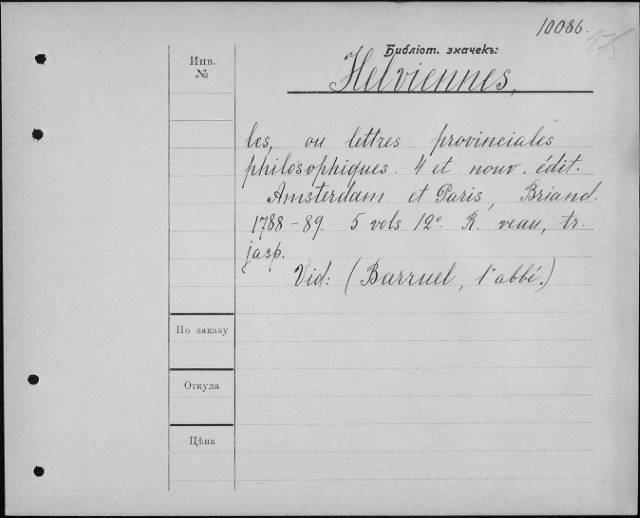 10086.
175
Библіот. значекъ:
Инв.
№
Helviennes,
les, ou lettres provinciales
philosophiques. 4 et nouv. édit.
Amsterdam et Paris, Briand.
1788-89. 5 vols 12º. R. veau, tr.
jasp.
Vid: (Barruel, l'abbé.)
По заказу
Откуда
Цѣна